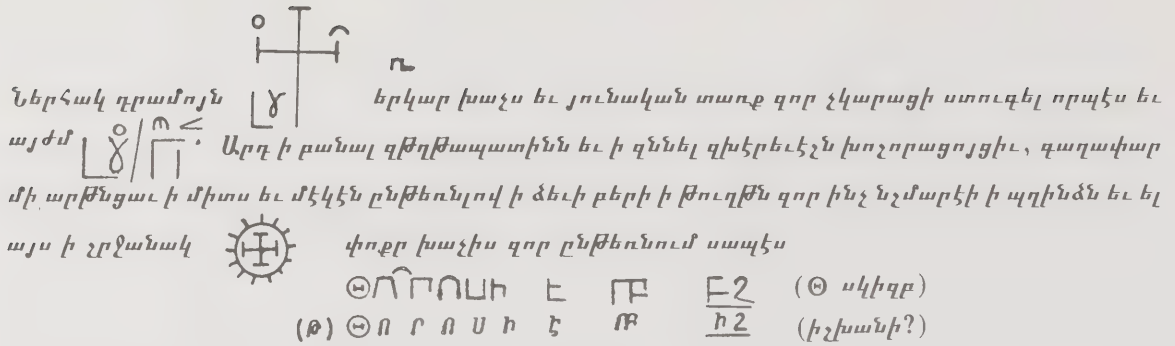 Ներհակ դրամոյն երկար խաչս եւ յունական տառք զոր չկարացի ստուգել որպէս եւ
այժմ Արդ ի բանալ զԹղԹապատինն եւ ի զննել զխէրեւէչն խոշորացոյցիւ, գաղափար
մի արԹնցաւ ի միտս եւ մէկէն ընԹեռնլով ի ձեւի բերի ի Թուղթն զոր ինչ նշմարէի ի պղինձն եւ ել
այս ի շրջանակ փոքր խաչիս զոր ընԹեռնում սապէս
(Θ սկիզբ)
(թ) Θ Ո Ր Ո Ս Ի Է ԻՇ (իշխանի?)